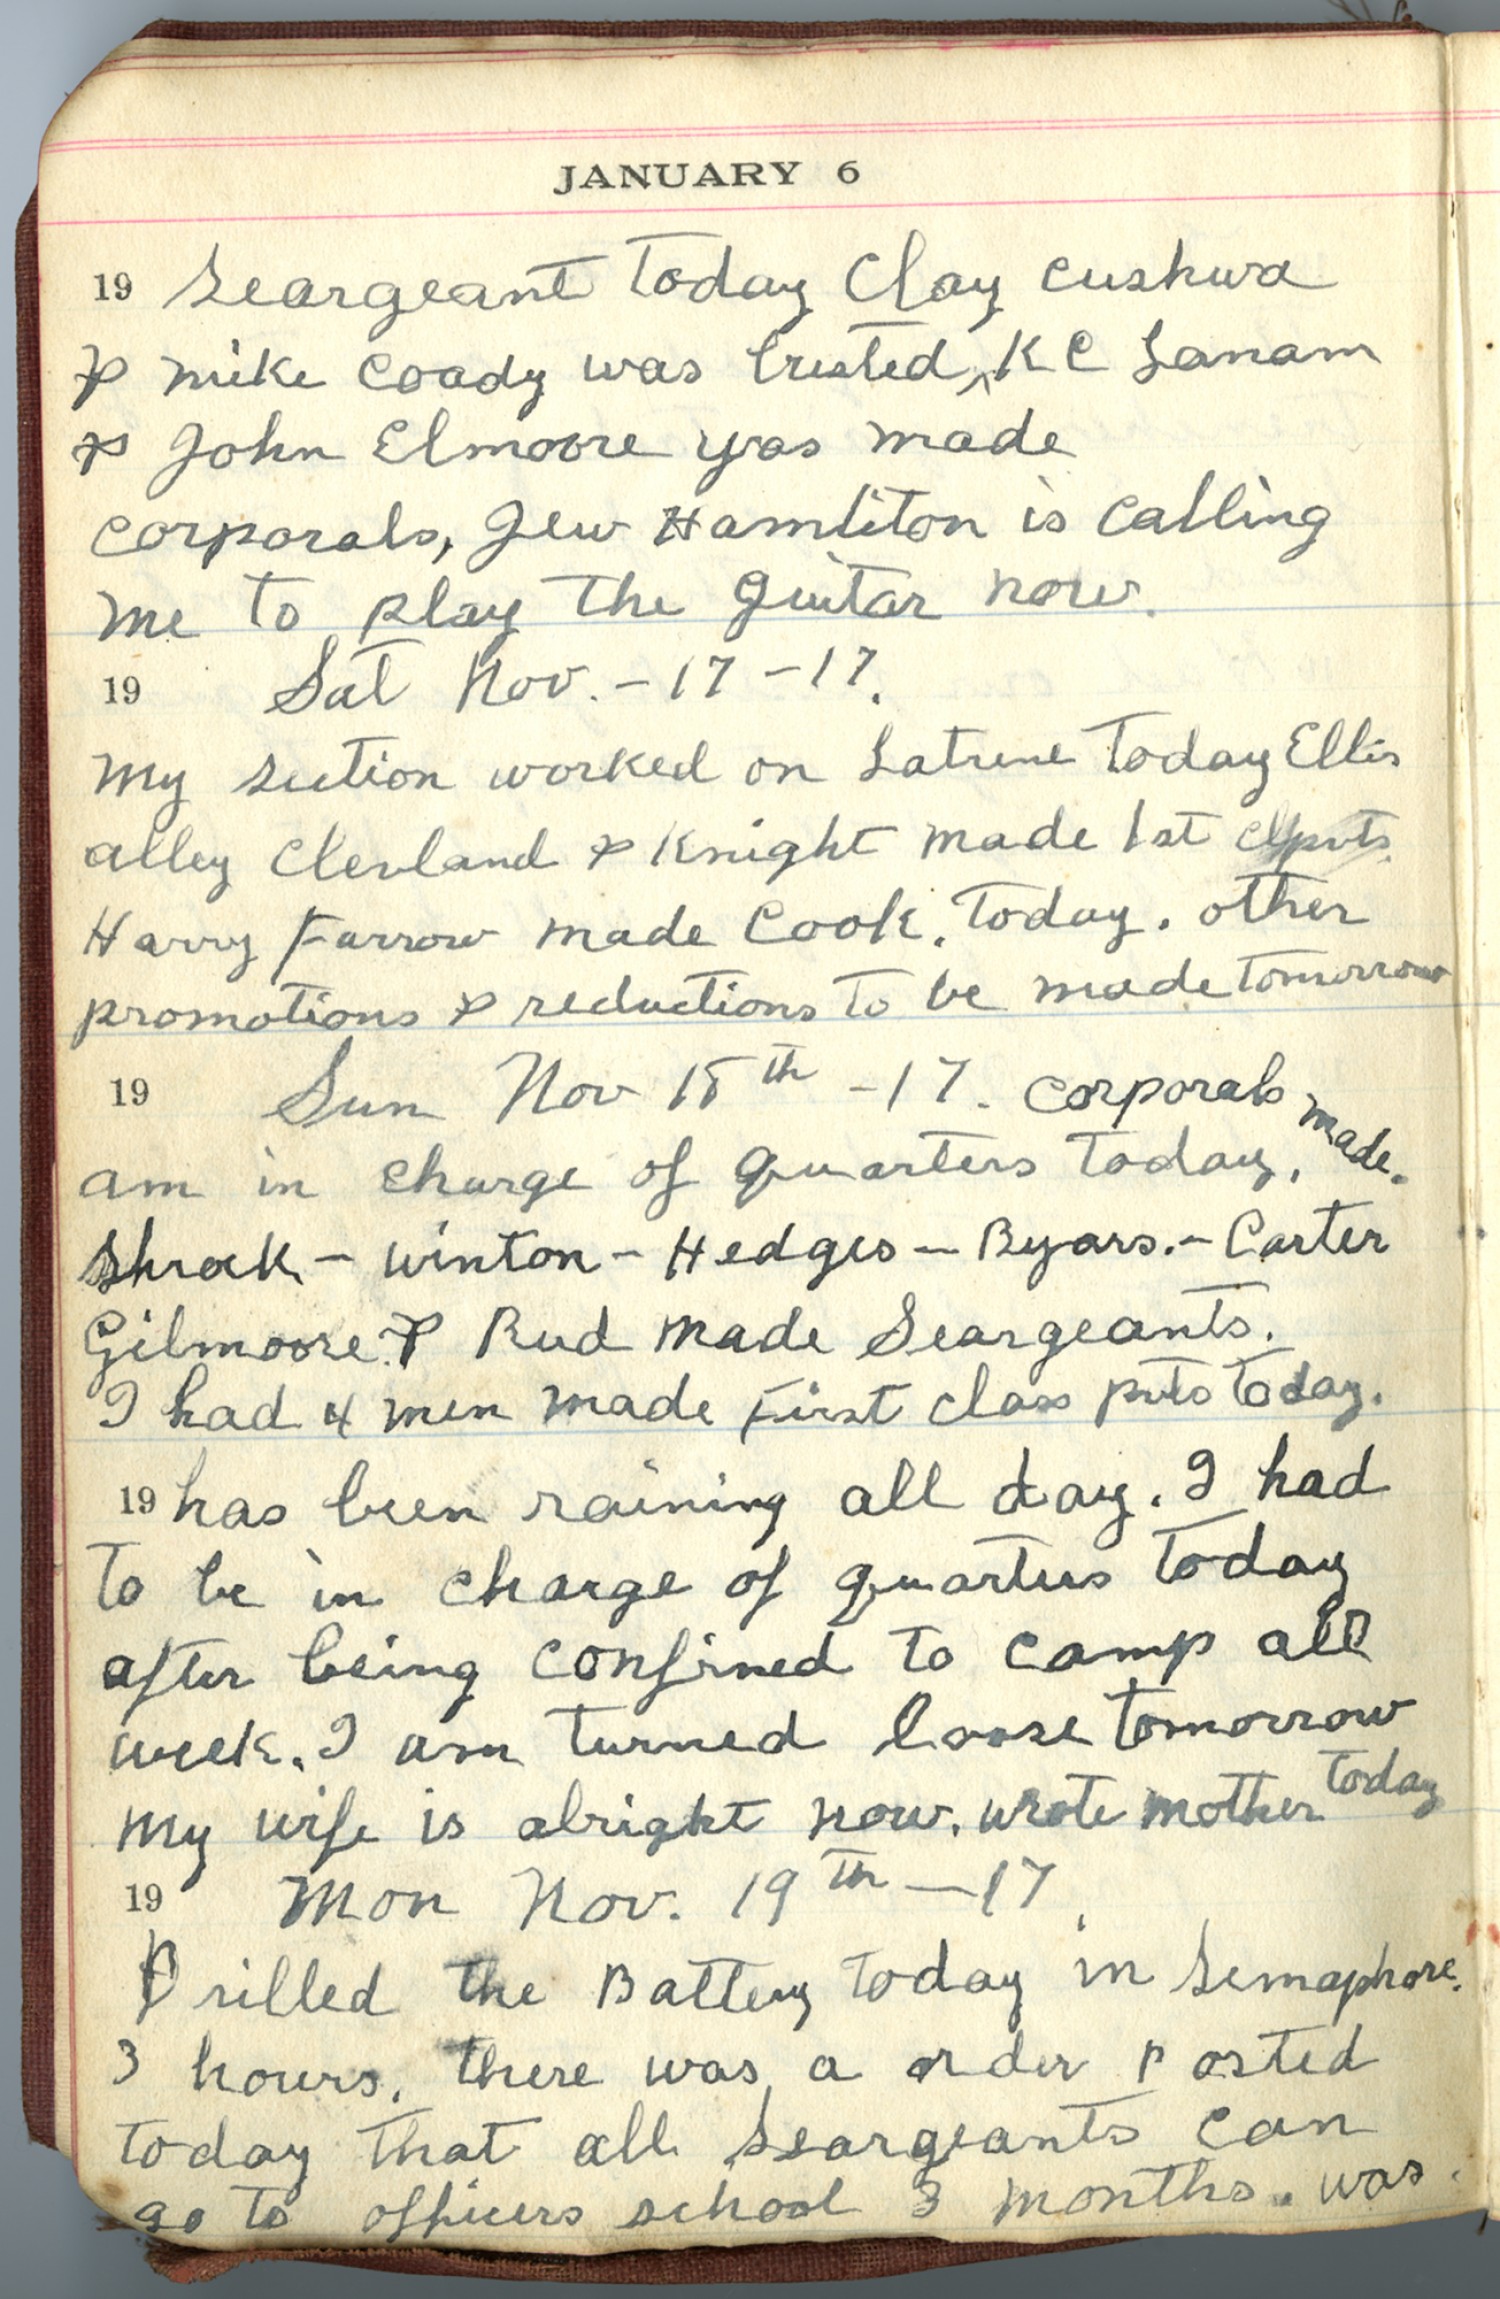 JANUARY 6
19 Seargeant Today Clay Cushwa
& Mike Coady was busted, ^ K C Lanam
& John Elmoore was made
corporals, Jew Hamliton is calling
me to play the Guitar now.
19 Sat Nov. - 17 - 17.
My section worked on Latrine Today Ellis
alley Clevland & Knight made 1st pvts
Harry Farrow made Cook. Today. other
promotions & reductions to be made tomorrow
19 Sun Nov 18th - 17. corporals made.
am in charge of quarters today.
Shrock - Winton - Hedges - Byars. - Carter
Gilmoore. & Rud made Seargeants.
I had 4 men made First class pvts today.
19 has been raining all day. I had
to be in charge of quarters today
after being confined to camp all
week. I am turned loose tomorrow
My wife is alright now. wrote mother today
19 Mon Nov. 19th - 17.
Drilled the Battery today in Semaphore.
3 hours. there was a order posted
today that all Seargeants can
go to officers school 3 months. was